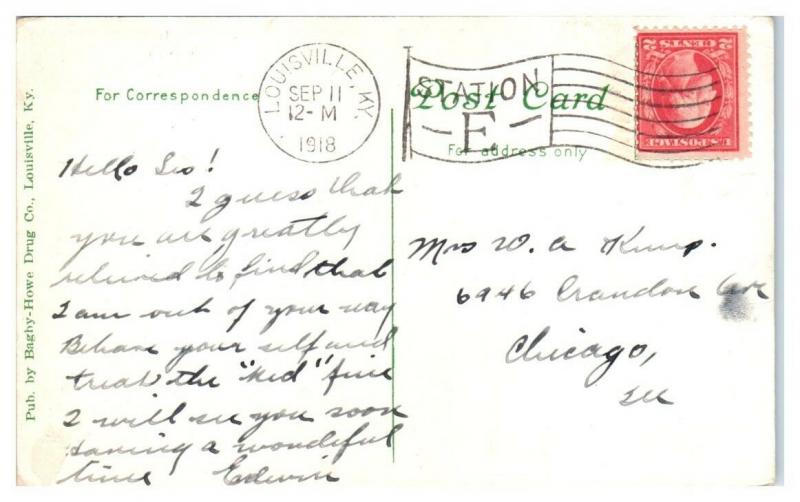 Pub. by Bagby-Howe Drug Co., Louisville, Ky.
For Correspondence
LOUISVILLE, KY.
SEP 11
12-M
1918
STATION
-E-
Post Card
For address only
2 CENTS 2
U.S. POSTAGE
Hello Sis!
I guess that
you are greatly
relieved to find that
I am out of your way
Behave your self and
treat the "Kid" fine
I will see you soon
Having a wonderful
time Edwin
Mrs W. A
6946 Crandon Ave
Chicago,
Ill